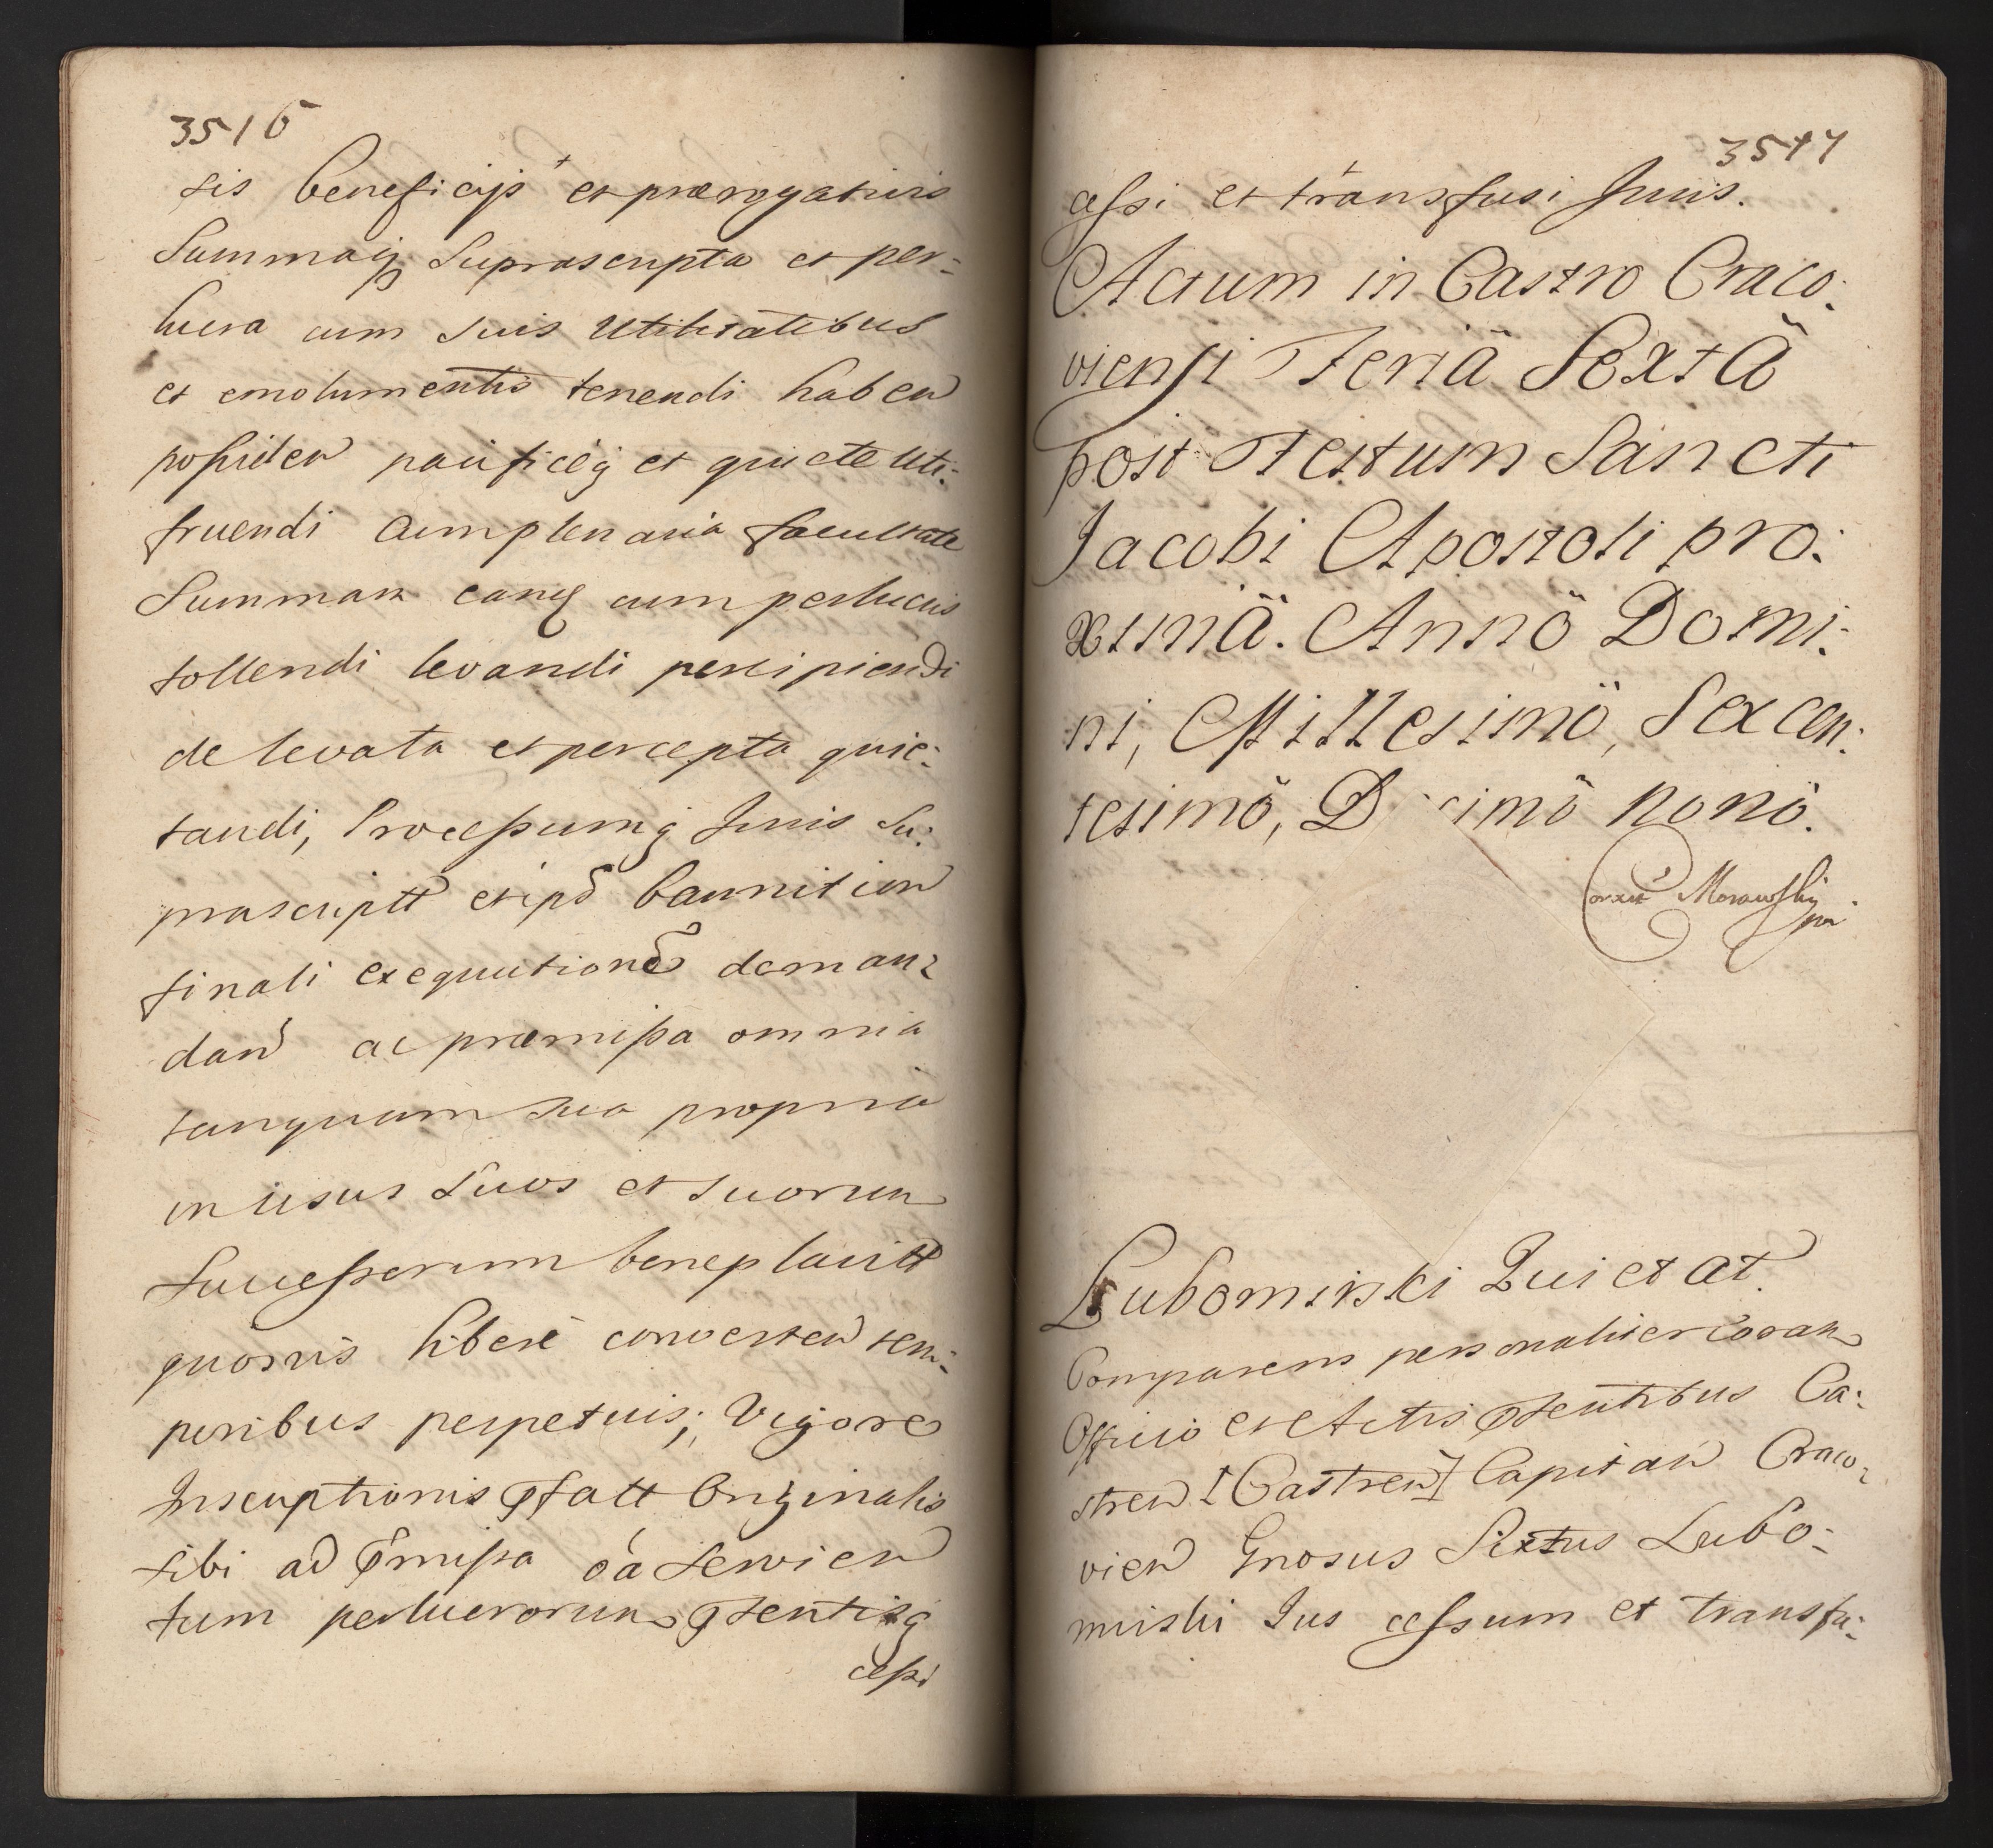 3516
sis beneficijs et prærogativis
Summaq Suprascripta et per-
lucra cum suis Utilitatibus
et emolumentis tenendi haben
possiden pacificeq et quiete uti-
fruendi cum plenaria facultate
Summam eamq cum perlucris
tollendi levandi percipiendi
de levata et percepta quie-
tandi, Processumq Juris Su-
prascriptt et ipõ bannition
finali exequutione deman-
dan ac præmissa omnia
tanquam sua propria
in usus suos et suorum
Successorum beneplacitt
quosvis liberè converten tem-
poribus perpetuis; Vigore
Inscriptionis pfatt Originalis
sibi ad pmissa oã servien
tum perlucrorum psentisq
cessi
3517
cessi et transfusi Juris.
Actum in Castro Craco-
viensi Feriâ Sextâ
post Festum Sancti
Jacobi Apostoli pro-
ximâ. Annô Domi-
ni, Millesimô, Sexcen-
tesimô, D cimô nonô.
Corrxit Morawski
mp
Lubomirski Quietat
Comparens personaliter coram
Officio et Actis psentibus Ca-
stren [Castren] Capitan Craco-
vien Gnosus Sixtus Lubo-
mirski Jus cessum et transfu-